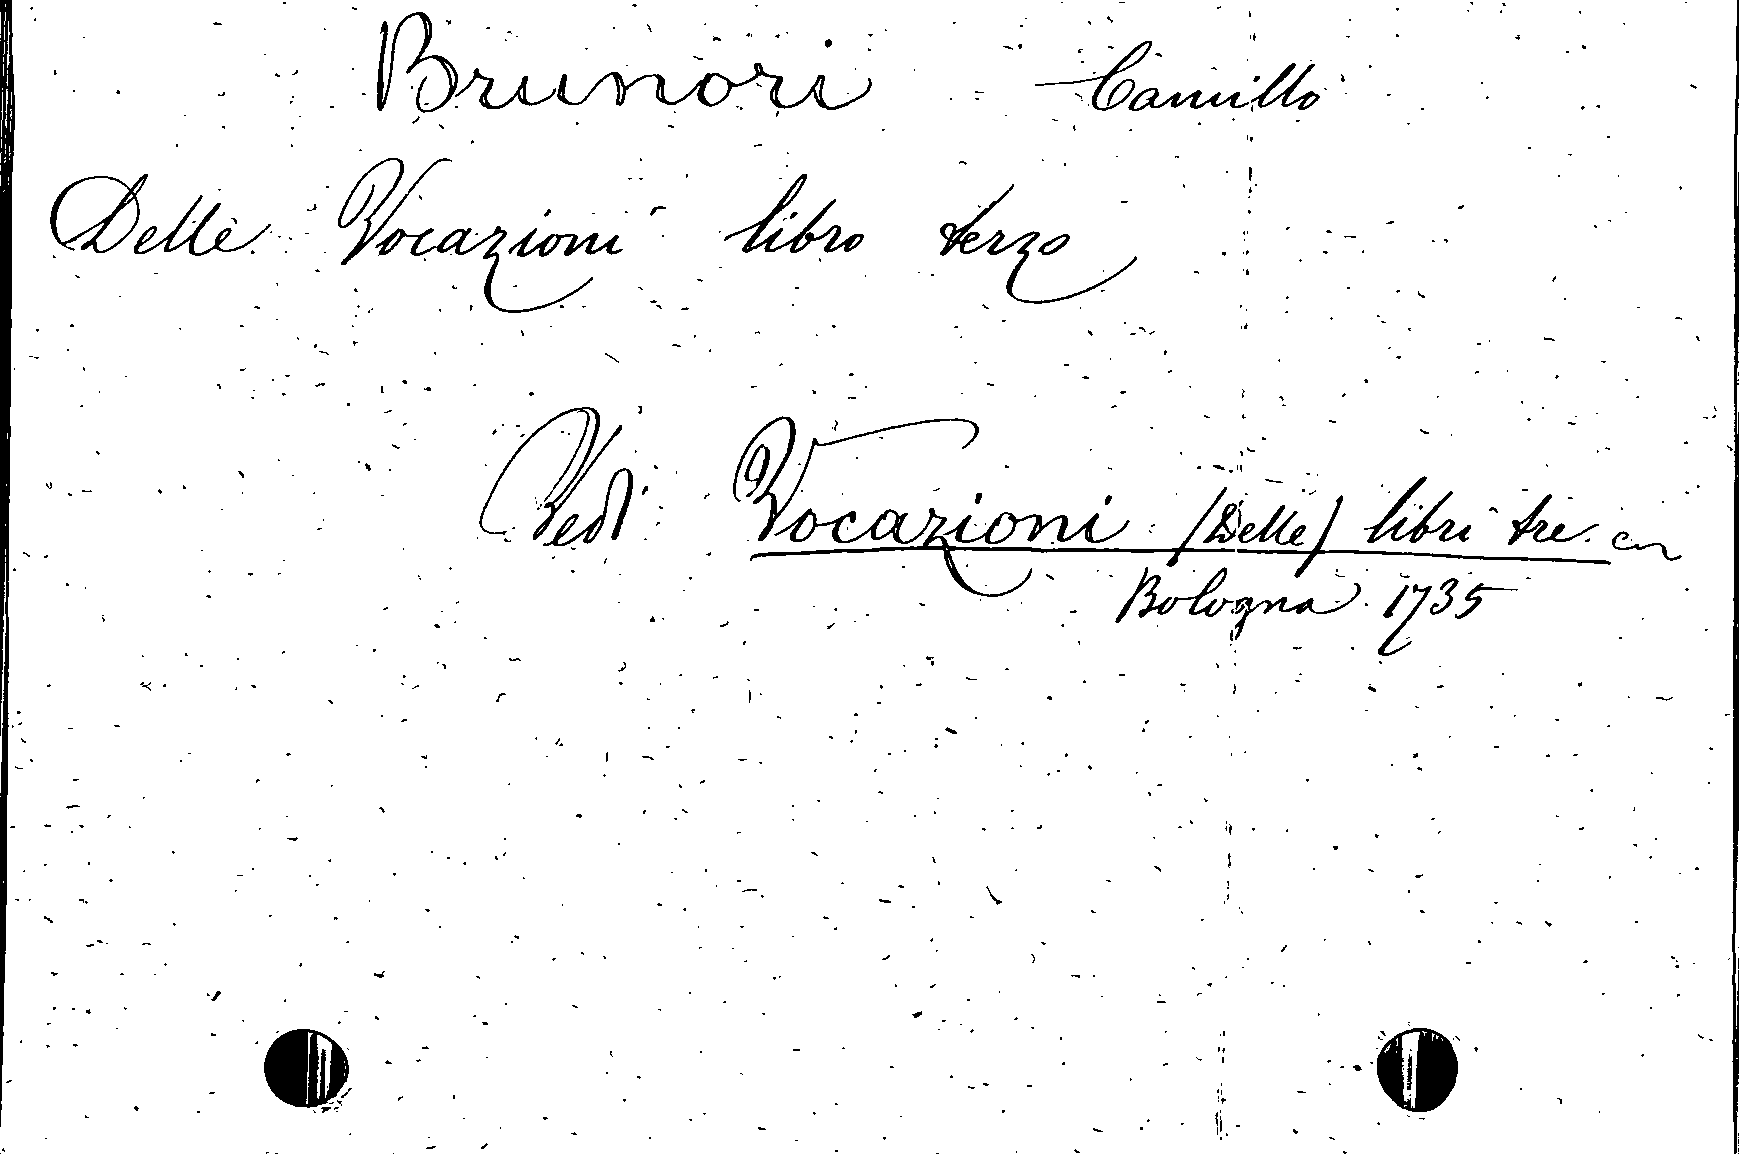 Brunori Camillo
Delle Vocazioni libro terzo
Vedi Vocazioni (Delle) libri tre.
Bologna 1735